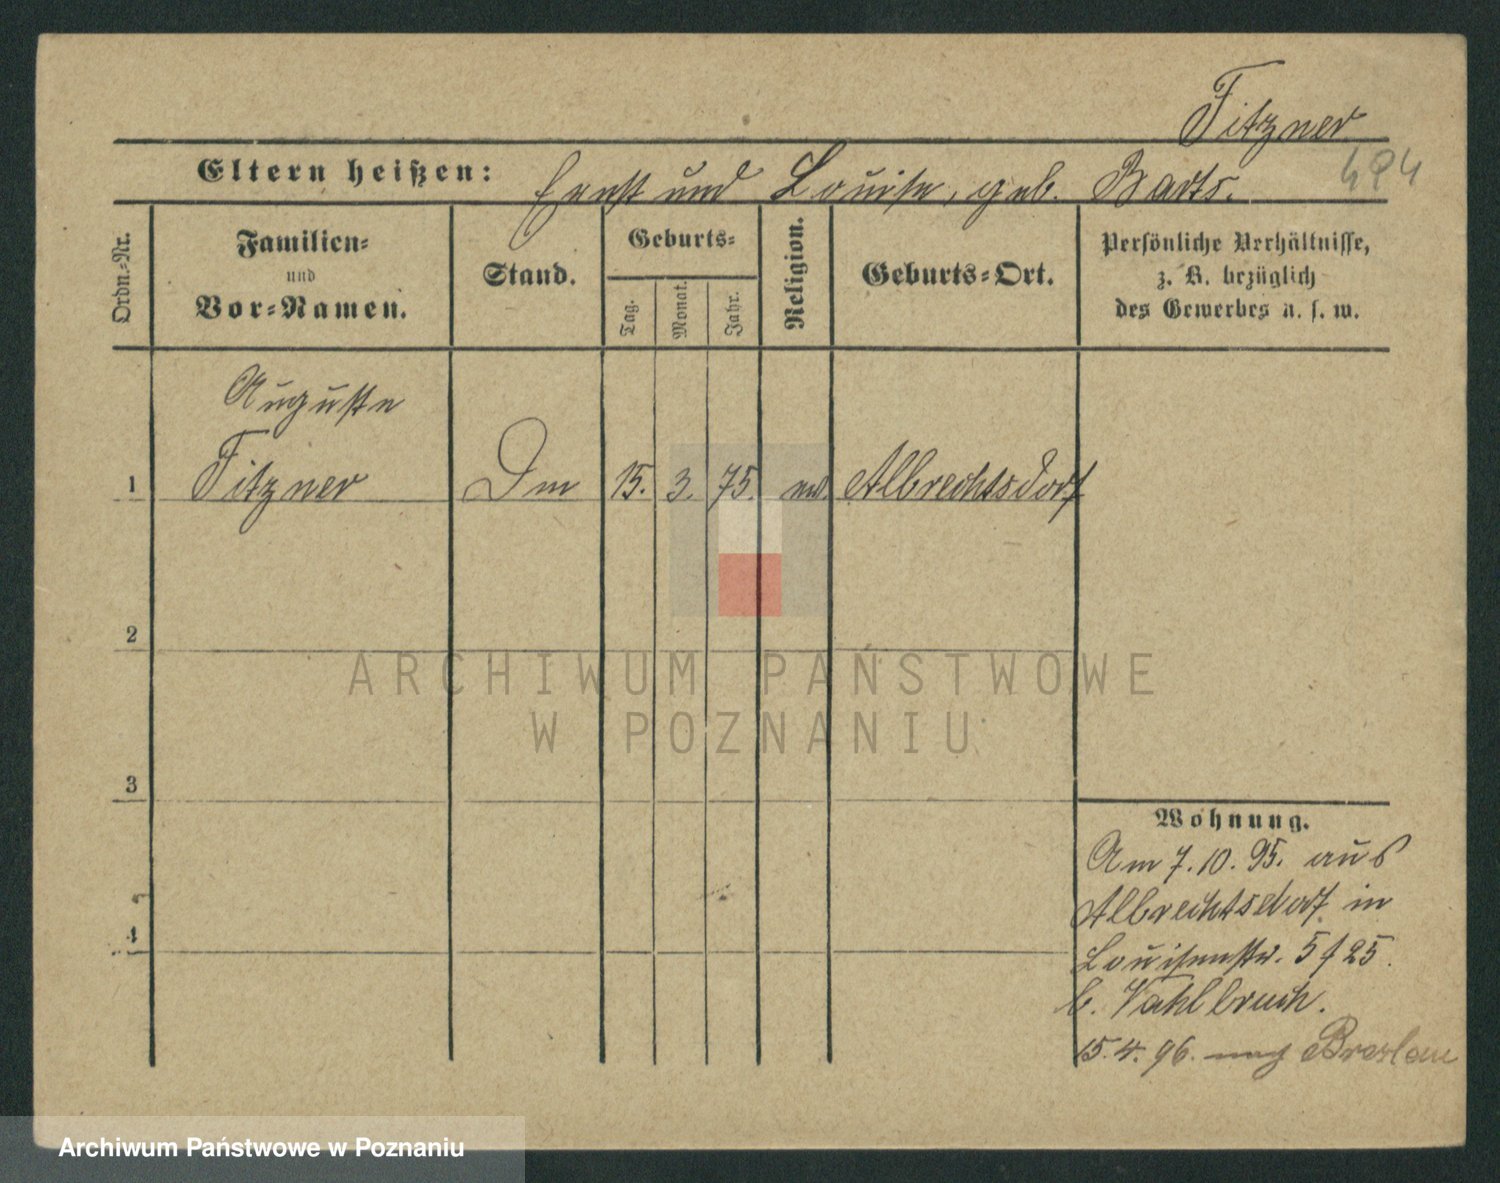 Fitzner
494
Eltern heißen: Ernst und Louise, geb. Barts.
Ordn.-Nr.
Familien-
und
Vor-Namen.
Stand.
Geburts-
Tag.
Monat.
Jahr.
Religion.
Geburts-Ort.
Persönliche Verhältnisse,
z. B. bezüglich
des Gewerbes u. s. w.
Auguste
1 Fitzner 15. 3. 75. Albrechtsdorf
2
3
4
Wohnung.
Am 7. 10. 95. aus
Albrechtsdorf in
Louisenstr. 5 f 25.
b. Vahlbruch.
15. 4. 96. nach Breslau
ARCHIWUM PAŃSTWOWE
W POZNANIU
Archiwum Państwowe w Poznaniu